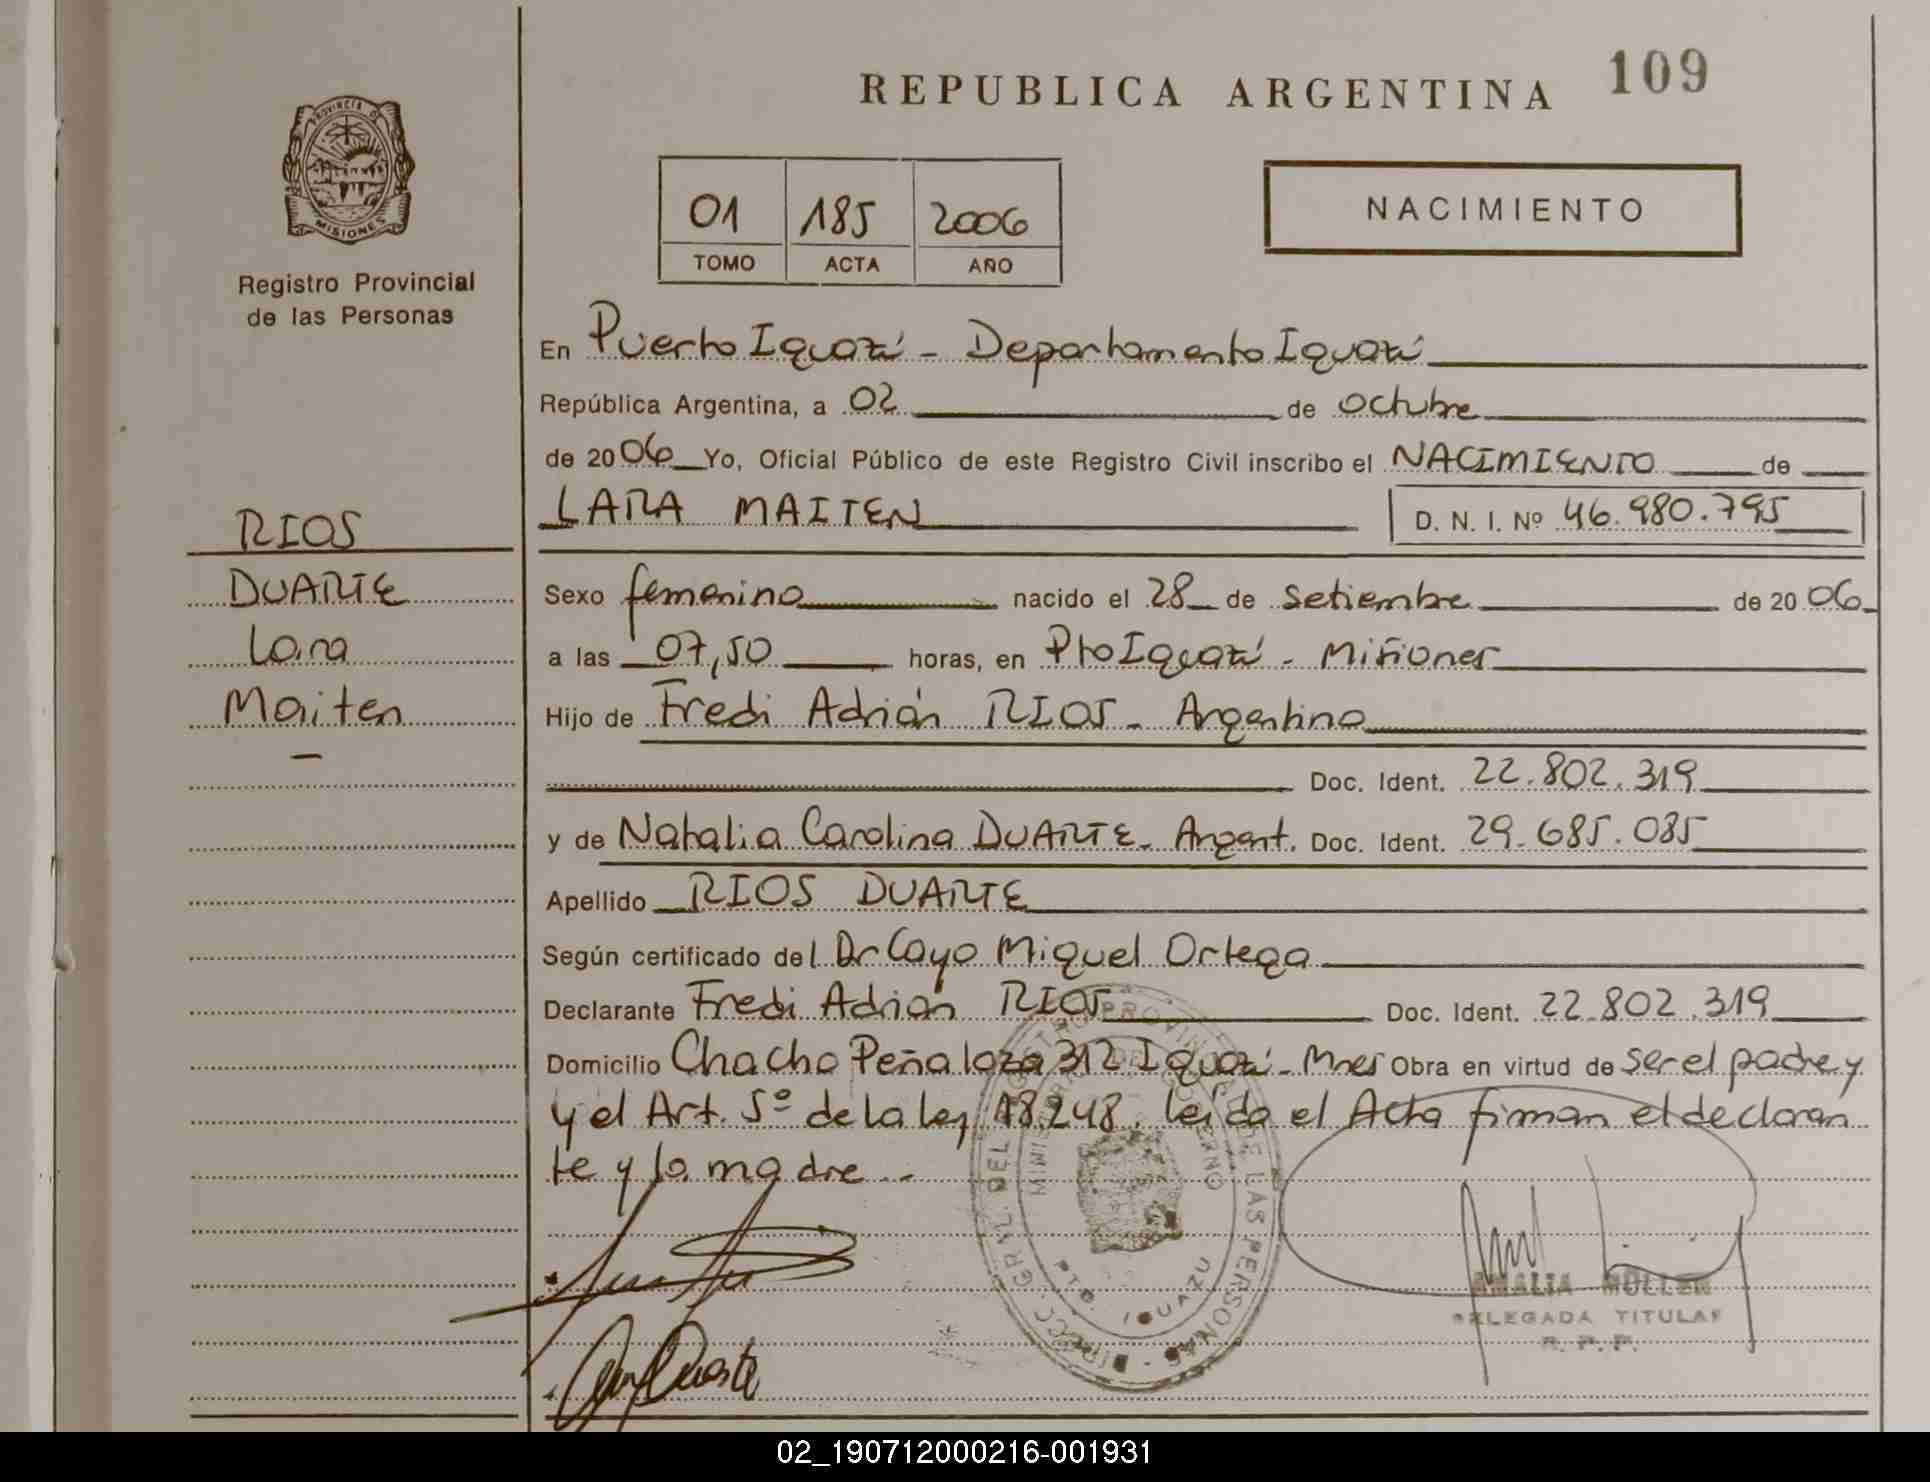 REPUBLICA ARGENTINA
109
PROVINCIA DE
MISIONES
Registro Provincial
de las Personas
01 185 2006
TOMO ACTA AÑO
NACIMIENTO
En Puerto Iguazú - Departamento Iguazú
República Argentina, a 02 de octubre
de 2006 Yo, Oficial Público de este Registro Civil inscribo el NACIMIENTO de
LARA MAITEN D. N. I. Nº 46.980.795
RIOS
DUARTE
Lara
Maiten
Sexo femenino nacido el 28 de setiembre de 2006
a las 07,50 horas, en Pto Iguazú - Misiones
Hijo de Fredi Adrián RIOS - Argentino
Doc. Ident. 22.802.319
y de Natalia Carolina DUARTE - Argent. Doc. Ident. 29.685.085
Apellido RIOS DUARTE
Según certificado del Dr Cayo Miguel Ortega
Declarante Fredi Adrián RIOS Doc. Ident. 22.802.319
Domicilio Chacho Peñaloza 312 Iguazú - Mnes Obra en virtud de ser el padre y
y el Art. 5º de la ley 18.248. leída el Acta firman el declaran
te y la madre.-
MINISTERIO DE GOBIERNO
PTO. IGUAZU
AMALIA MULLER
DELEGADA TITULAR
R. P. P.
02_190712000216-001931